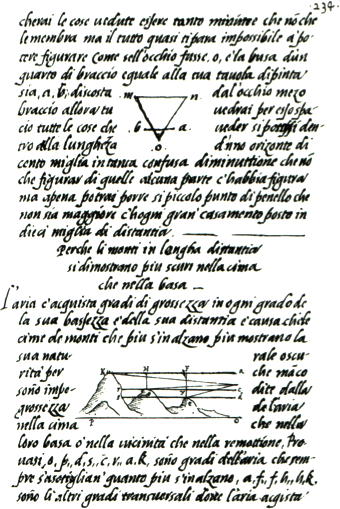 234.
cherai le cose uedute essere tanto minime che nō che
le membra ma il tutto quasi ti para impossibile à po-
tere figurare come se ll'occhio fusse, o, e la busa d'un
quarto di braccio equale alla tua tauola dipinta
sia, a, b, discosta dal'occhio mezo
m n.
braccio allora tu uedrai per esso spa-
cio tutte le cose che ueder si possono den-
b a.
tro alla lunghezza d'uno orizonte di
o.
cento miglia in tanta confusa diminuttione che nō
che figurar di quelle alcuna parte c'habbia figura
ma apena potrai porre si piccolo punto di penello che
non sia maggiore c'hogni gran' casamento posto in
dieci miglia di distantia.
Perche li monti in longha distantia
si dimostrano piu scuri nella cima
che nella basa
L'aria c'acquista gradi di grossezza in ogni grado de
la sua bassezza e della sua distantia è causa ch'ele
cime de monti che piu s'inalzano piu mostrano la
sua natu rale oscu-
rità per che māco
sono impe- dite dalla
grossezza de l'aria
nella cima che nella
P O
loro basa o' nella vicinità che nella remottione, Pro-
uasi, o, p, d, s, c, r, a, k, sono gradi dell'aria che sem-
pre s'asotiglian' quanto piu s'inalzano, a, f, f, h, h, k,
sono li altri gradi transuersali doue l'aria aquista